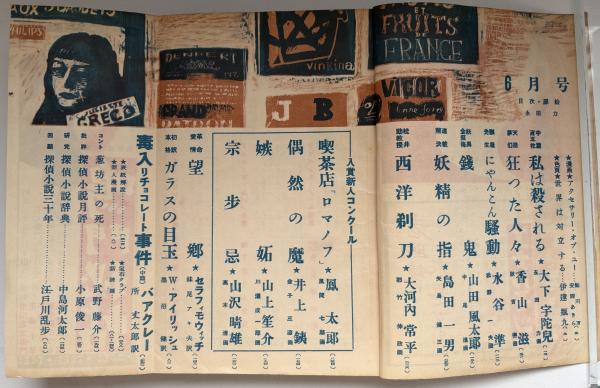 AUX SORBETS
PHILIPS
JULIETTE
GRECO
DENBERT
GRAND
PATRON
vinkina
J B
ET
FRUITS
FRANCE
VIGOR
6月号
目次・扉絵
永田力
★漫画★アクセサリー・オブ・ユー
★色頁★世界は対立する…伊達瓢九
私は殺される★大下宇陀児
狂つた人々★香山滋
にやんこん騒動★水谷準
銭鬼★山田風太郎
妖精の指★島田一男
松井助教授
西洋剃刀★大河内常平
入賞新人コンクール
喫茶店「ロマノフ」鳳太郎
偶然の魔★井上銕
嫉妬★山上笙介
宗歩忌★山沢晴雄
革命愛情
望郷★セラフィモヴィッチ
妹尾アキ夫訳
初訳本格
ガラスの目玉★W・アイリッシュ
毒入りチョコレート事件
バアクレー
所丈太郎訳
コント
葱坊主の死…武野藤介
批評
探偵小説月評…小原俊一
研究
探偵小説辞典…中島河太郎
回顧
探偵小説三十年…江戸川乱歩